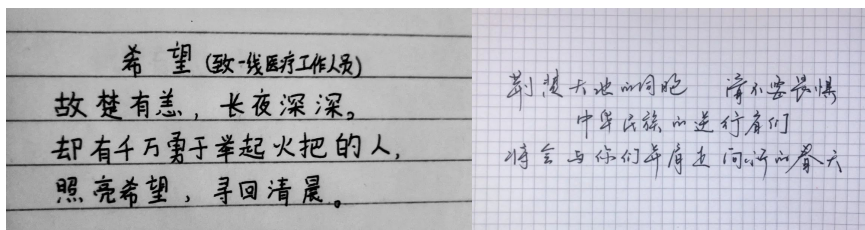 希望(致一线医疗工作人员)
故楚有恙，长夜深深。
却有千万勇于举起火把的人，
照亮希望，寻回清晨。
荆楚大地的同胞 请不要畏惧
中华民族的逆行者们
将会与你们并肩走向新的春天